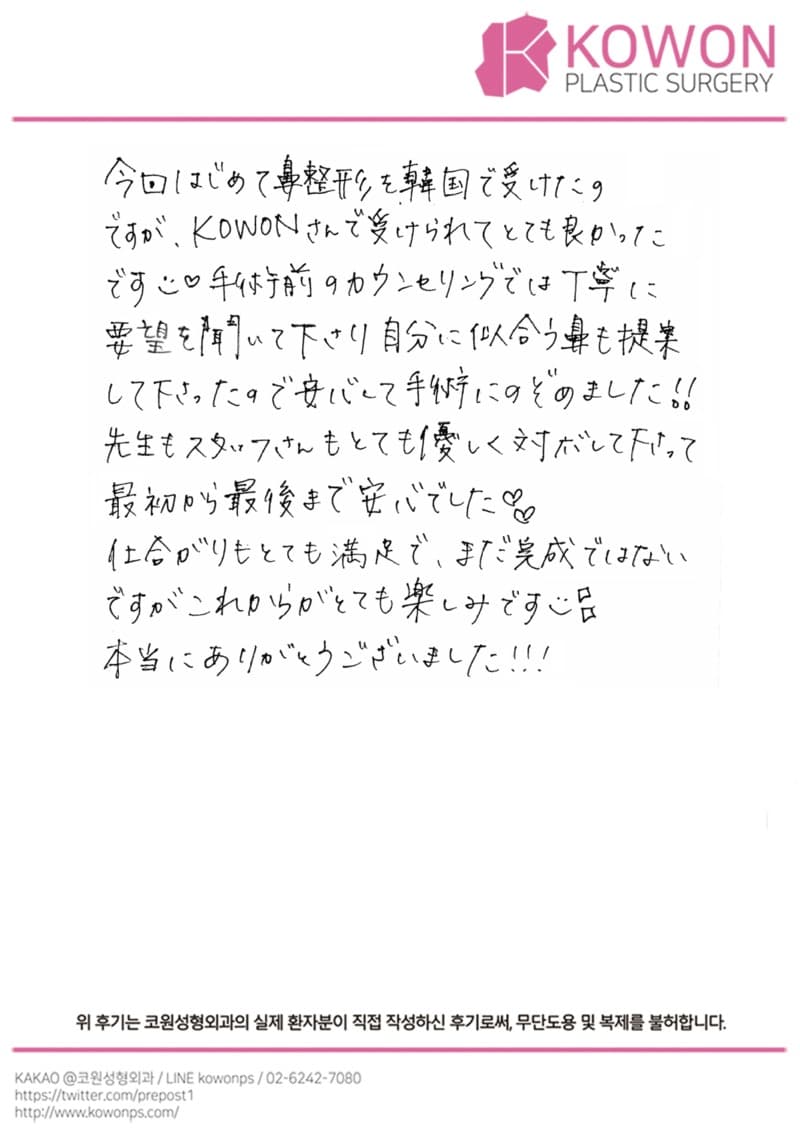 KOWON
PLASTIC SURGERY
今回はじめて鼻整形を韓国で受けたの
ですが、KOWONさんで受けられてとても良かった
です☺♡手術前のカウンセリングでは丁寧に
要望を聞いて下さり自分に似合う鼻も提案
して下さったので安心して手術にのぞめました!!
先生もスタッフさんもとても優しく対応して下さって
最初から最後まで安心でした♡♡
仕上がりもとても満足で、まだ完成ではない
ですがこれからがとても楽しみです☺
本当にありがとうございました!!!
위 후기는 코원성형외과의 실제 환자분이 직접 작성하신 후기로써, 무단도용 및 복제를 불허합니다.
KAKAO @코원성형외과 / LINE kowonps / 02-6242-7080
https://twitter.com/prepost1
http://www.kowonps.com/